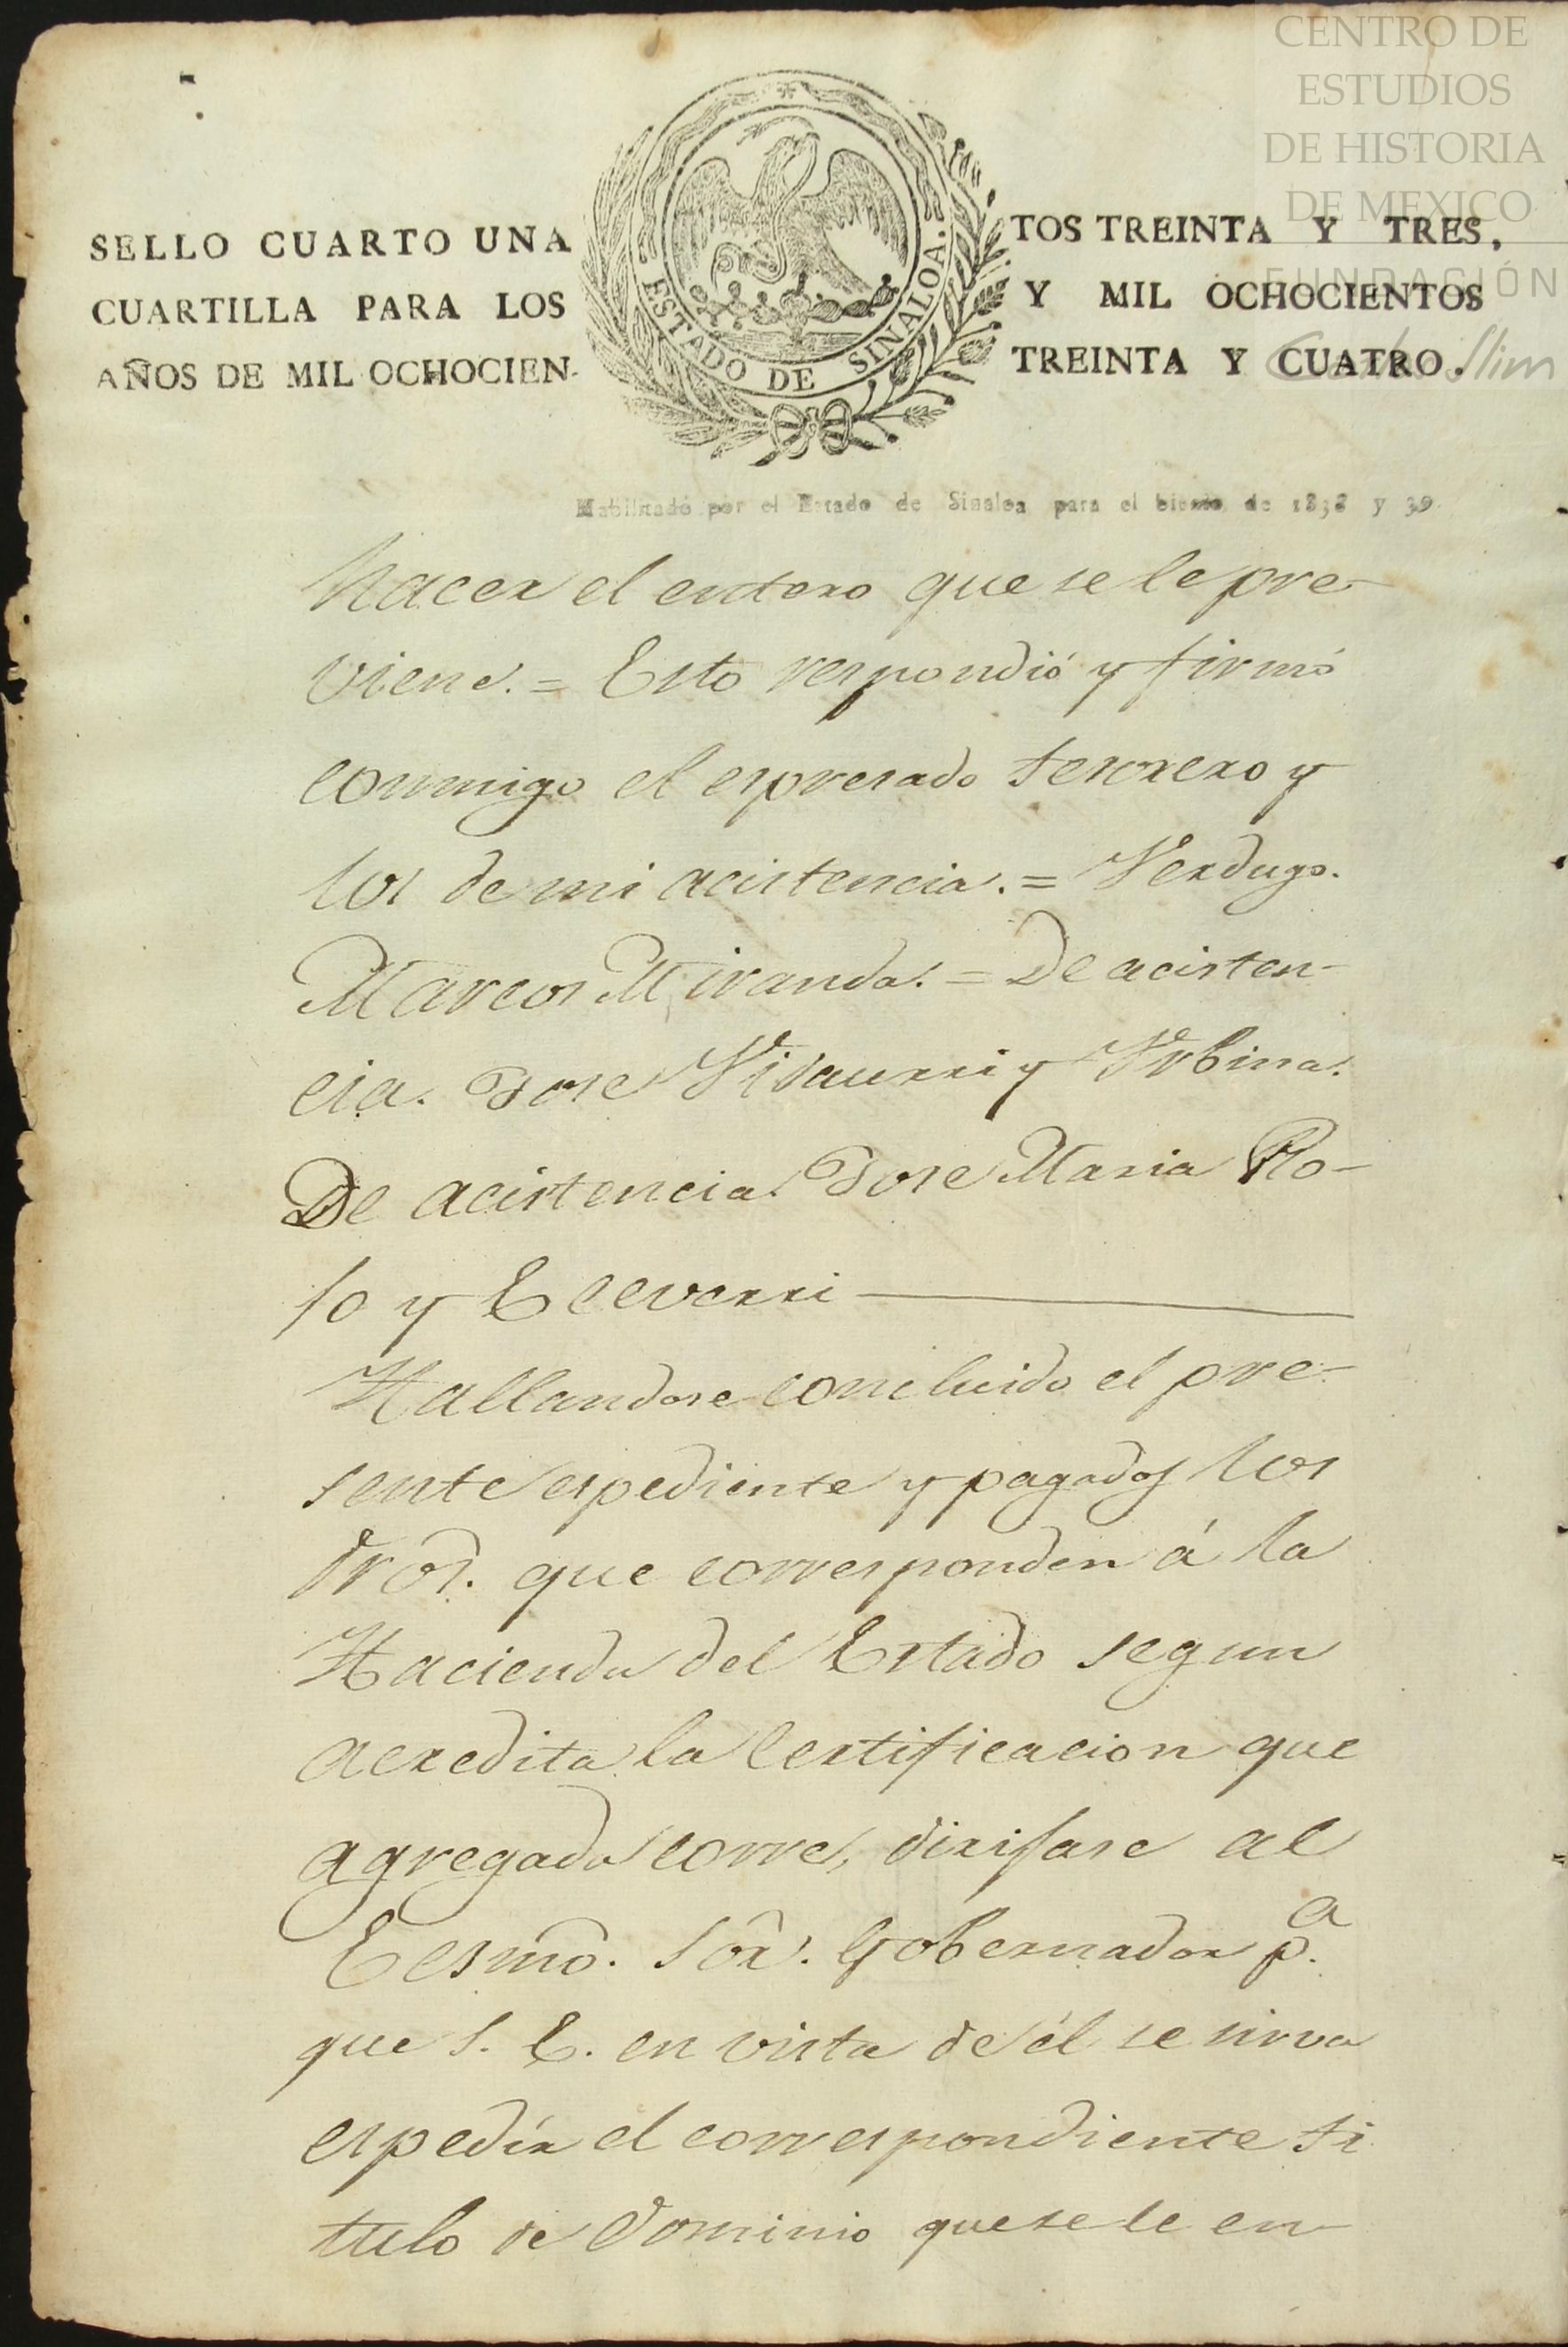 CENTRO DE
ESTUDIOS
DE HISTORIA
DE MEXICO
FUNDACIÓN
Carlos Slim
SELLO CUARTO UNA
CUARTILLA PARA LOS
AÑOS DE MIL OCHOCIEN-
ESTADO DE SINALOA.
TOS TREINTA Y TRES,
Y MIL OCHOCIENTOS
TREINTA Y CUATRO.
Habilitado por el Estado de Sinaloa para el bienio de 1838 y 39
hacer el entero que se le pre-
viene. = Esto respondió y firmó
conmigo el espresado tercero y
los de mi acistencia. = Verdugo.
Marcos Miranda. = De acisten-
cia. Jose Visaurri y Vrbina.
De acistencia. Jose Maria Ro-
jo y Eceverri
Hallandose concluido el pre-
sente espediente y pagados los
dros. que corresponden á la
Hacienda del Estado segun
acredita la Certificacion que
agregada corre, dirijase al
Ecsmo. Sor. Gobernador pa.
que S. E. en vista de él se sirva
espedír el correspondiente ti
tulo de dominio que se le en-